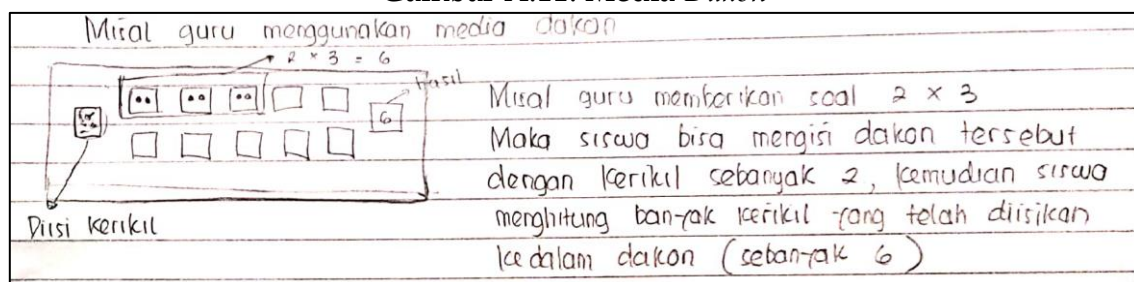 Misal guru menggunakan media dakon
2 × 3 = 6
Hasil
6
Diisi kerikil
Misal guru memberikan soal 2 × 3
Maka siswa bisa mengisi dakon tersebut
dengan kerikil sebanyak 2, kemudian siswa
menghitung banyak kerikil yang telah diisikan
kedalam dakon (sebanyak 6)